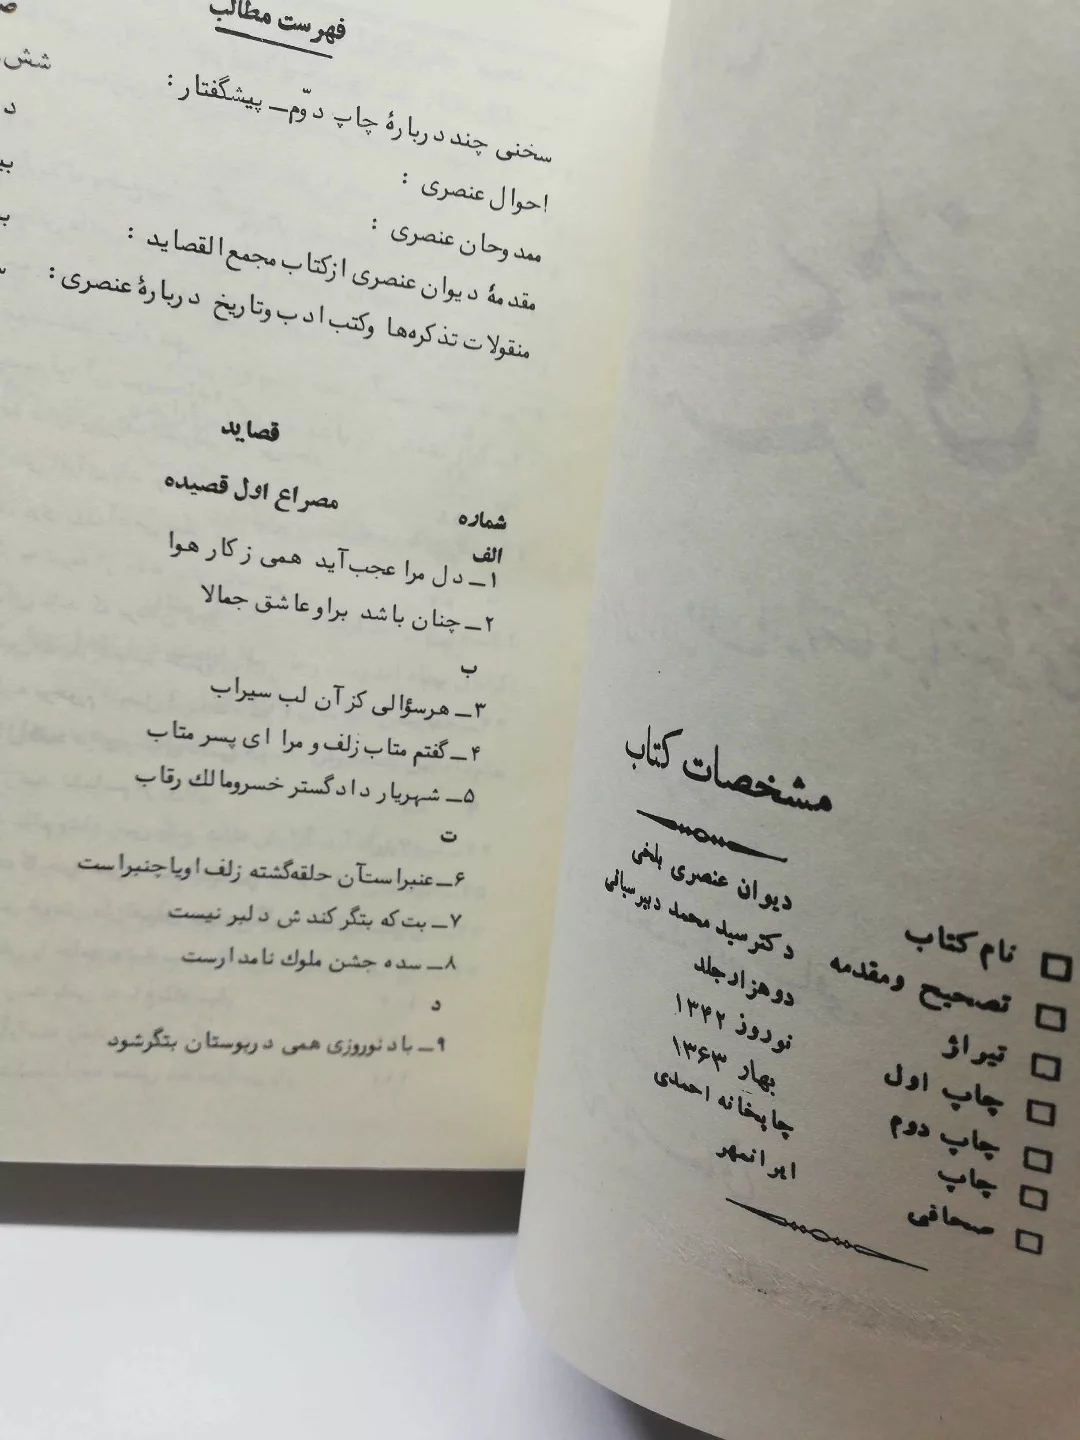 مشخصات کتاب
نام کتاب دیوان عنصری بلخی
تصحیح ومقدمه دکتر سید محمد دبیرسیاقی
تیراژ دوهزارجلد
چاپ اول نوروز ۱۳۴۲
چاپ دوم بهار ۱۳۶۳
چاپ چاپخانه احمدی
صحافی ایرانمهر
فهرست مطالب
سخنی چند دربارۀ چاپ دوّم ــ پیشگفتار : شش
احوال عنصری :
ممدوحان عنصری :
مقدمۀ دیوان عنصری ازکتاب مجمع القصاید :
منقولات تذکره‌ها وکتب ادب وتاریخ دربارۀ عنصری :
قصاید
شماره مصراع اول قصیده
الف
۱ــ دل مرا عجب آید همی ز کار هوا
۲ــ چنان باشد براو عاشق جمالا
ب
۳ــ هرسؤالی کز آن لب سیراب
۴ــ گفتم متاب زلف و مرا ای پسر متاب
۵ــ شهریار دادگستر خسرومالك رقاب
ت
۶ــ عنبراست‌آن حلقه‌گشته زلف اویاچنبراست
۷ــ بت که بتگر کندش دلبر نیست
۸ــ سده جشن ملوك نامدارست
د
۹ــ باد نوروزی همی دربوستان بتگرشود